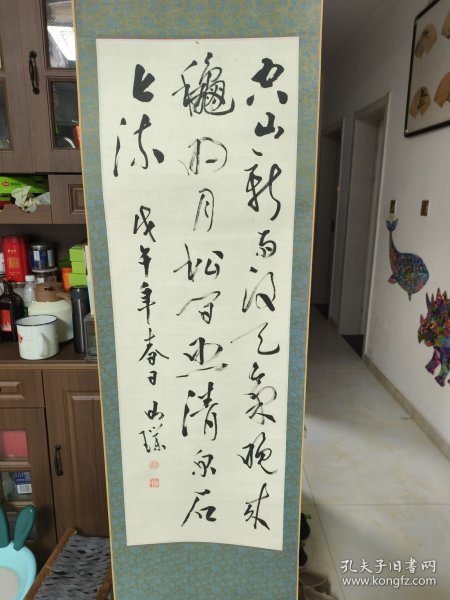 空山新雨後天氣晚来
龝明月松间照清泉石
上流
戊午年春日
孔夫子旧书网
www.kongfz.com